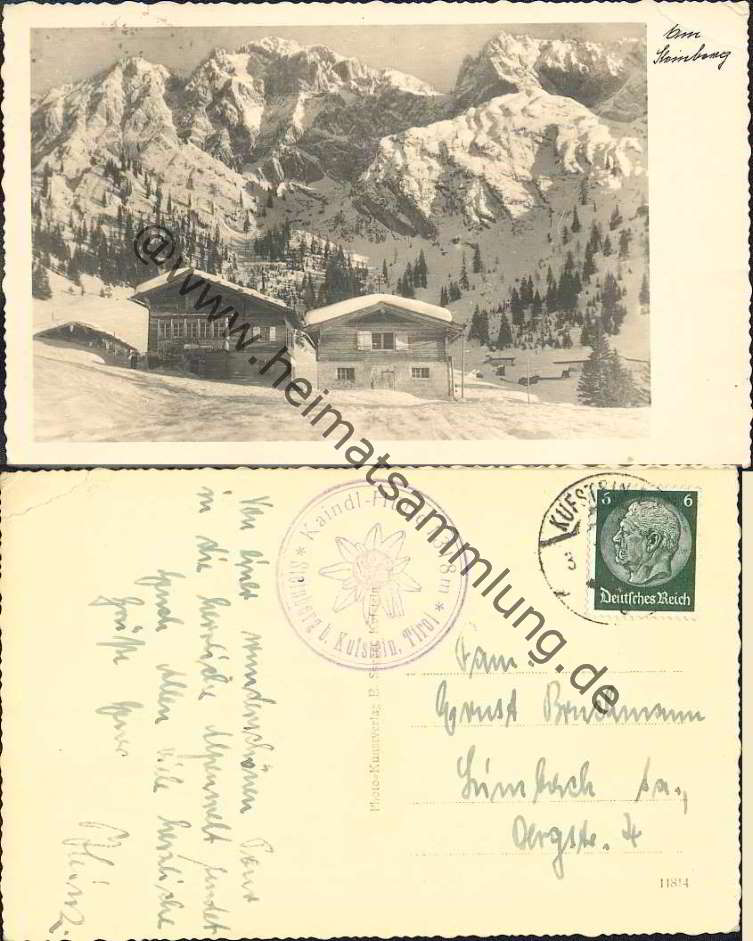 Am
Steinberg
@www.heimatsammlung.de
* Kaindl-Hütte *
Steinberg b. Kufstein, Tirol
KUFSTEIN
3
6 6
Deutsches Reich
Von einer wunderschönen Tour
in die herrliche Alpenwelt sendet
Euch Allen viele herzliche
Grüße Euer
Heinz.
Fam.
Ernst
Limbach Sa.,
4
11814